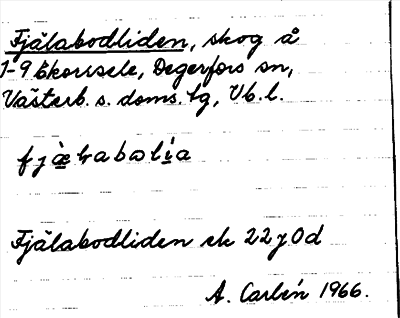 Fjälabodliden, skog å
1-9 Ekorrsele, Degerfors sn,
Västerb. s. doms. lg, Vb. l.
Fjälabodliden ek 22 J 0d
A. Carlén 1966.